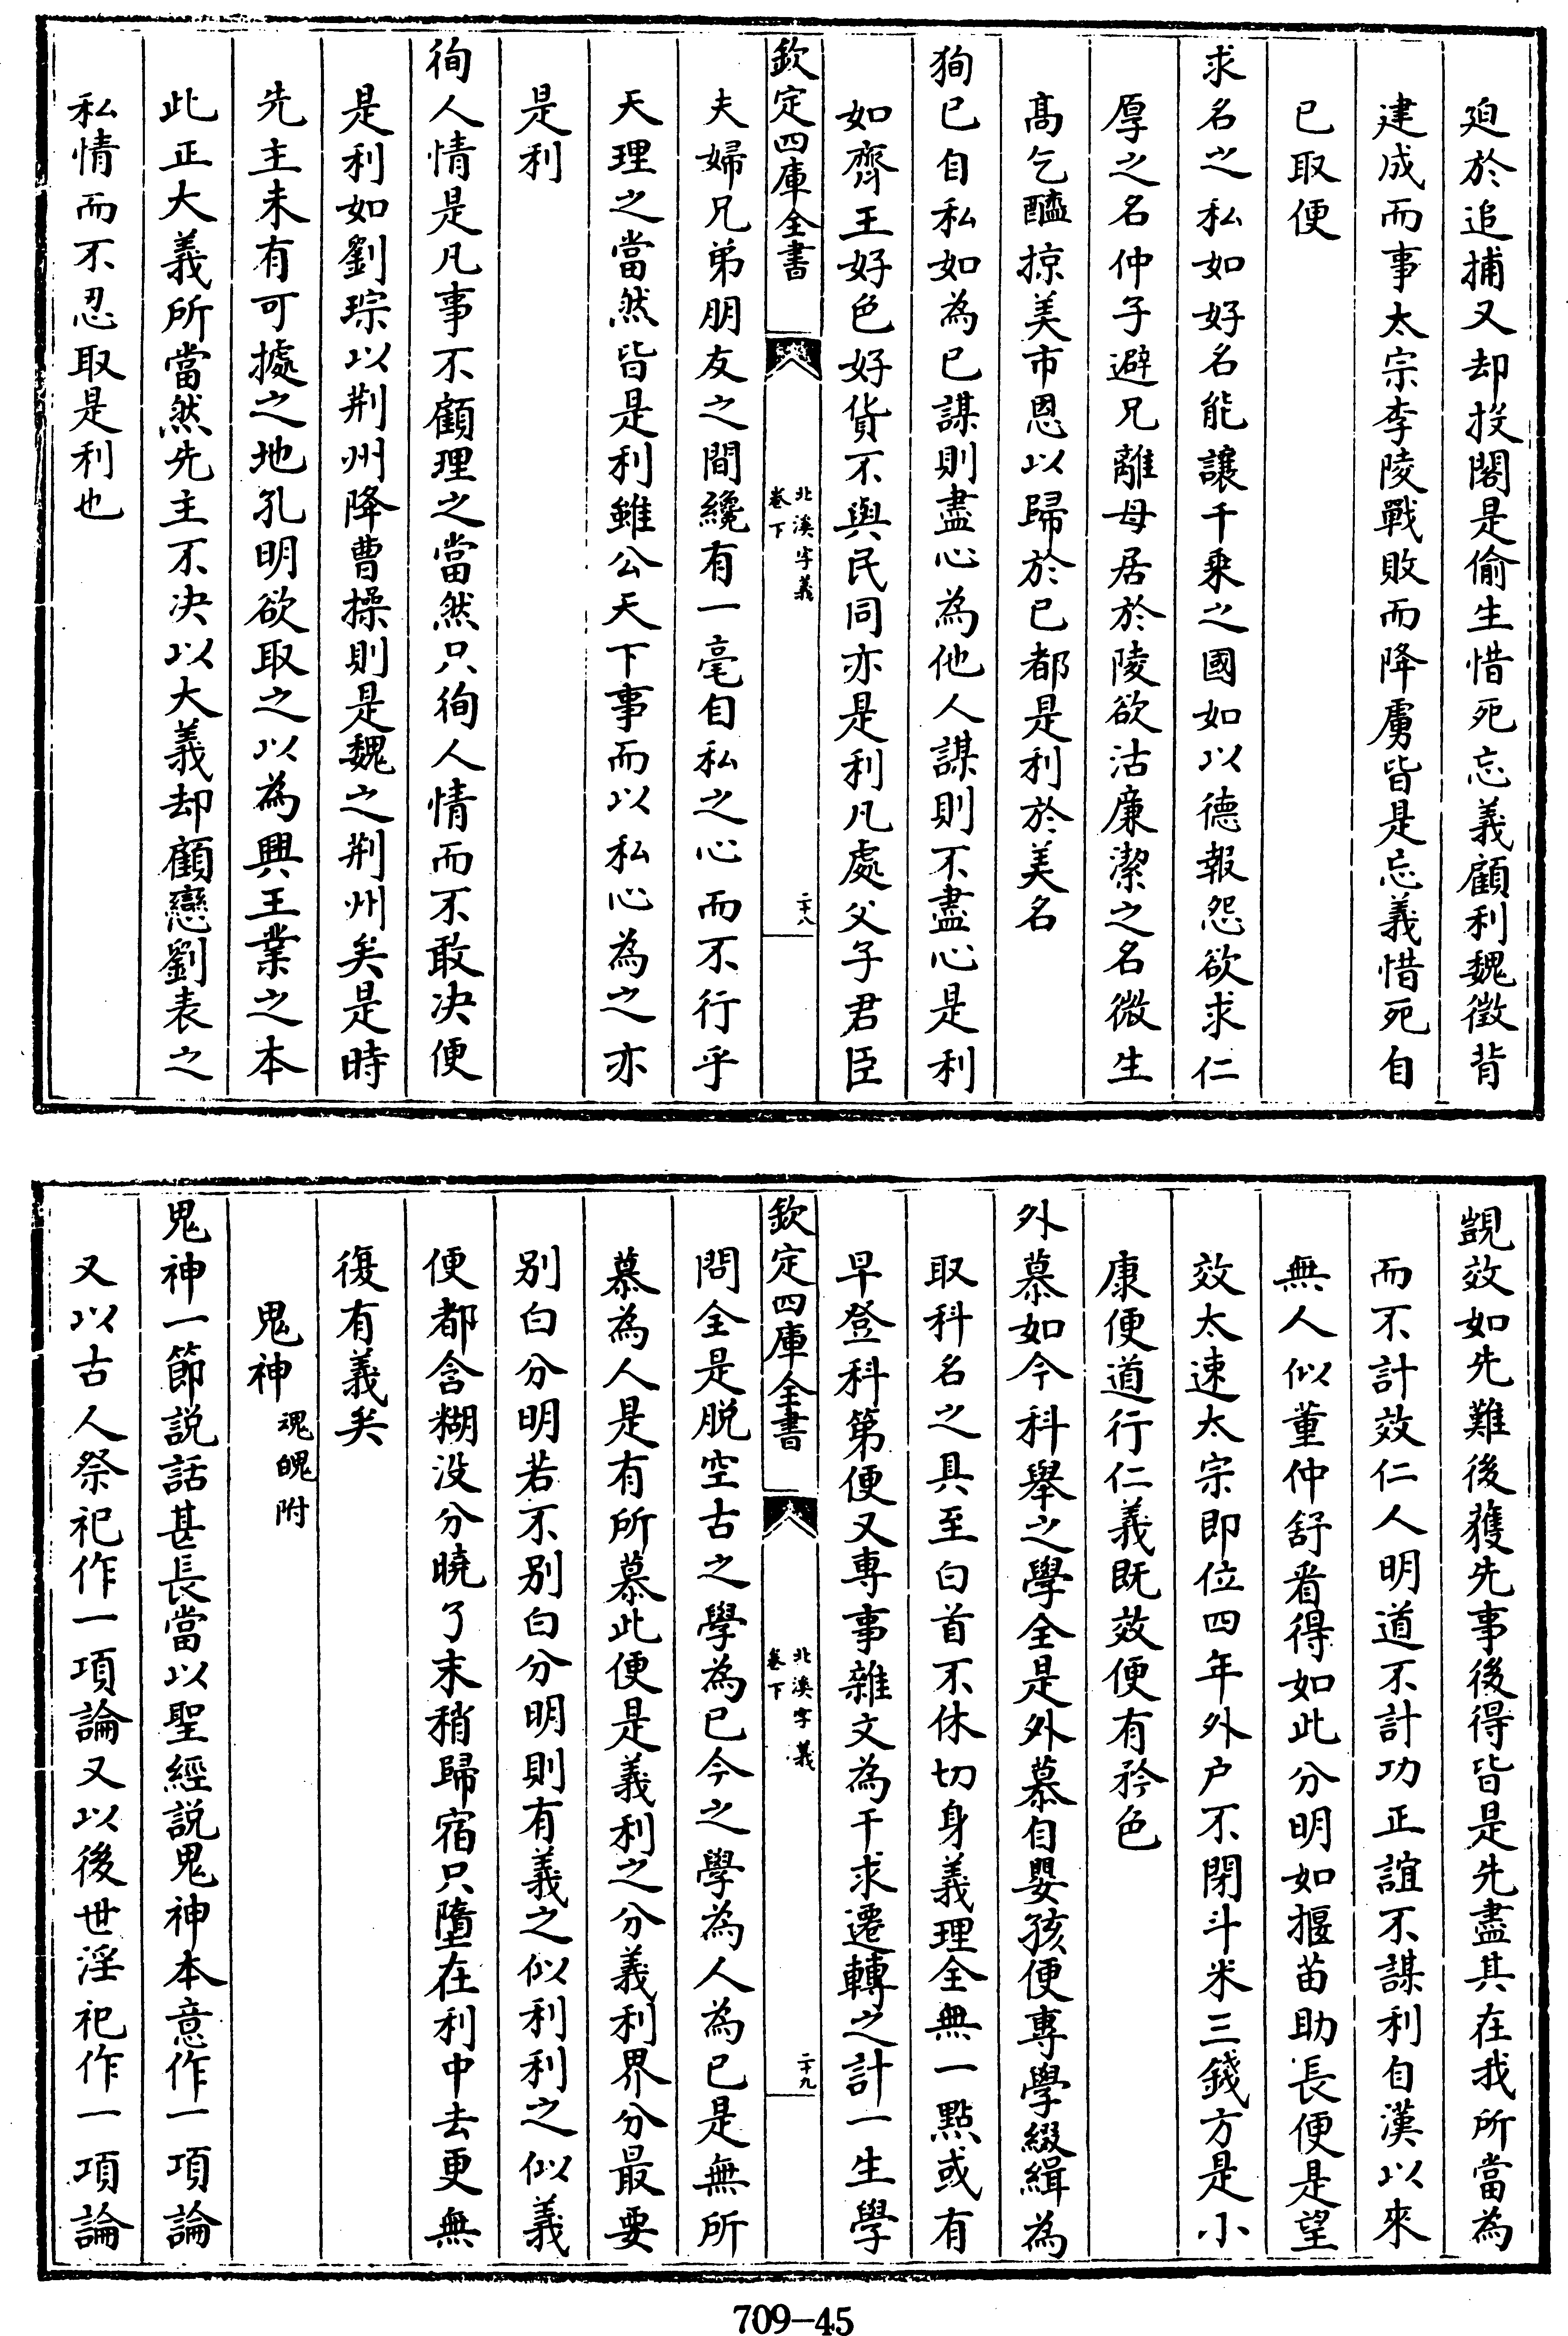 廹於追捕又却投閣是偷生惜死忘義顧利魏徴背
建成而事太宗李陵戰敗而降虜皆是忘義惜死自
已取便
求名之私如好名能讓千乗之國如以德報怨欲求仁
厚之名仲子避兄離母居於陵欲沽廉潔之名微生
髙乞醯掠美市恩以歸於已都是利於美名
狥已自私如為已謀則盡心為他人謀則不盡心是利
如齊王好色好貨不與民同亦是利凡處父子君臣
欽定四庫全書
北溪字義
卷下
二十八
夫婦兄弟朋友之間纔有一毫自私之心而不行乎
天理之當然皆是利雖公天下事而以私心為之亦
是利
徇人情是凡事不顧理之當然只徇人情而不敢决便
是利如劉琮以荆州降曹操則是魏之荆州矣是時
先主未有可據之地孔明欲取之以為興王業之本
此正大義所當然先主不决以大義却顧戀劉表之
私情而不忍取是利也
覬效如先難後獲先事後得皆是先盡其在我所當為
而不計效仁人明道不計功正誼不謀利自漢以來
無人似董仲舒看得如此分明如揠苗助長便是望
效太速太宗即位四年外户不閉斗米三錢方是小
康便道行仁義既效便有矜色
外慕如今科舉之學全是外慕自嬰孩便專學綴緝為
取科名之具至白首不休切身義理全無一點或有
早登科第便又専事雜文為干求遷轉之計一生學
欽定四庫全書
北溪字義
卷下
二十九
問全是脱空古之學為已今之學為人為已是無所
慕為人是有所慕此便是義利之分義利界分最要
别白分明若不别白分明則有義之似利利之似義
便都含糊没分曉了末稍歸宿只墮在利中去更無
復有義矣
鬼神魂魄附
鬼神一節説話甚長當以聖經説鬼神本意作一項論
又以古人祭祀作一項論又以後世淫祀作一項論
709-45